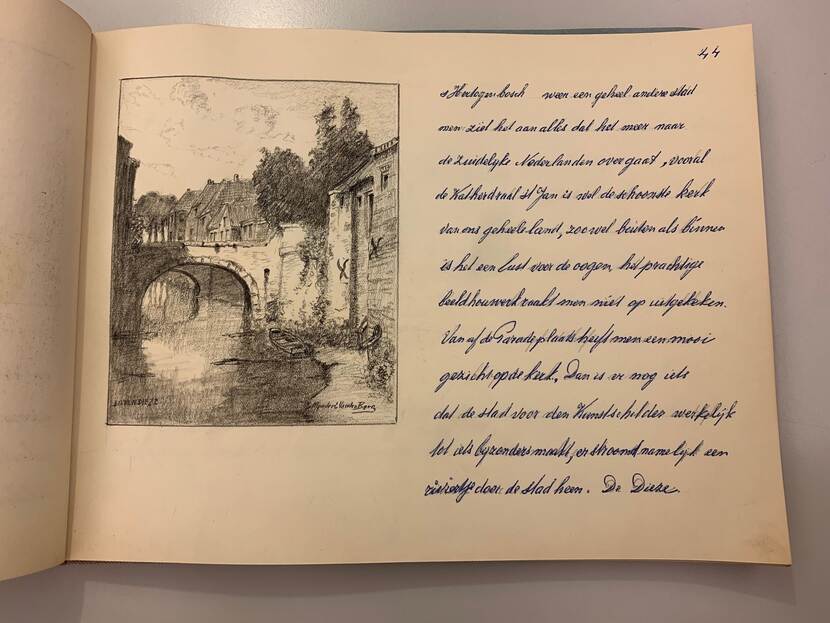 44
s Hertogenbosch weer een geheel andere stad
men ziet het aan alles dat het meer naar
de zuidelijke Nederlanden overgaat, vooral
de Kathedraal St Jan is wel de schoonste kerk
van ons geheele land, zoo wel buiten als binnen
is het een lust voor de oogen, het prachtige
beeldhouwerk raakt men niet op uitgekeken.
Van af de Parade plaats heeft men een mooi
gezicht op de kerk. Dan is er nog iets
dat de stad voor den Kunstschilder werkelijk
tot iets byzonders maakt, er stroomd namelijk een
riviertje door de stad heen. De Dieze.